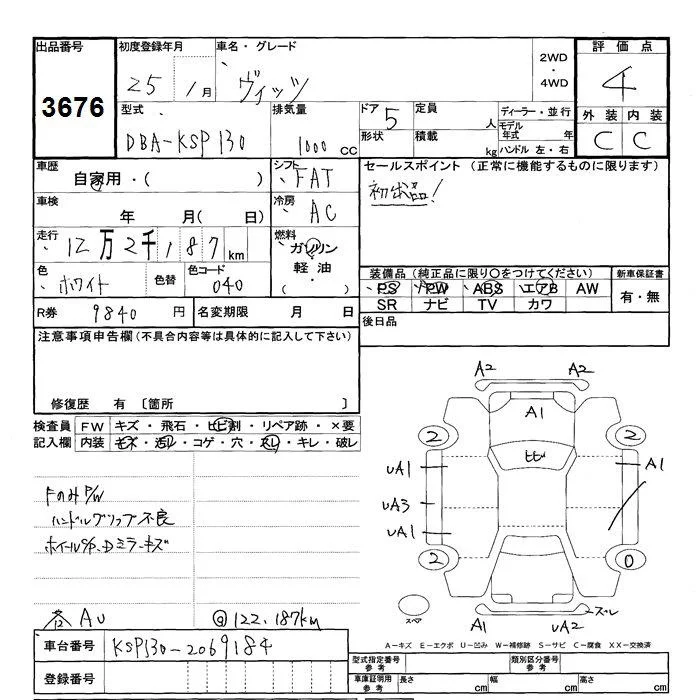 出品番号 初度登録年月 車名・グレード 2WD・4WD 評価点
3676 25年 1月 ヴィッツ 4
型式 排気量 ドア 定員 ディーラー・並行 外装 内装
DBA-KSP130 1000 CC 5 人 モデル年式 年 C C
形状 積載 kg ハンドル 左・右
車歴 シフト セールスポイント (正常に機能するものに限ります)
自家用・( ) FAT 初出品!
車検 冷房
年 月( 日) AC
走行 燃料
12万2千187km ガソリン
軽油・( )
色 色替 色コード 装備品 (純正品に限り○をつけてください) 新車保証書
ホワイト 040 PS PW ABS エアB AW 有・無
SR ナビ TV カワ
R券 9840 円 名変期限 月 日 後日品
注意事項申告欄 (不具合内容等は具体的に記入して下さい)
修復歴 有 〔箇所 〕
検査員 FW キズ・飛石・ヒビ割・リペア跡・×要
記入欄 内装 キズ・汚レ・コゲ・穴・スレ・キレ・破レ
Fのみ P/W
ハンドルグリップ不良
ホイールC/P、Dミラーキズ
各AU @122.187km
A2 A2
A1
2 2
ヒビ
UA1 A1
UA3
UA1
2 0
スペア A1 UA2 スレ
A-キズ E-エクボ U-凹み W-補修跡 S-サビ C-腐食 XX-交換済
車台番号 KSP130-2069184
登録番号
型式指定番号 参考 類別区分番号 参考
車庫証明用 参考 長さ cm 幅 cm 高さ cm